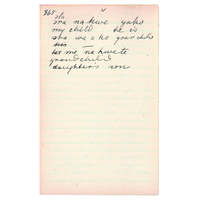 365
sha
ma na kwe yaho
my child he is
sha wa a ko grandchild
his
me na kwete
grandchild
daughter's son